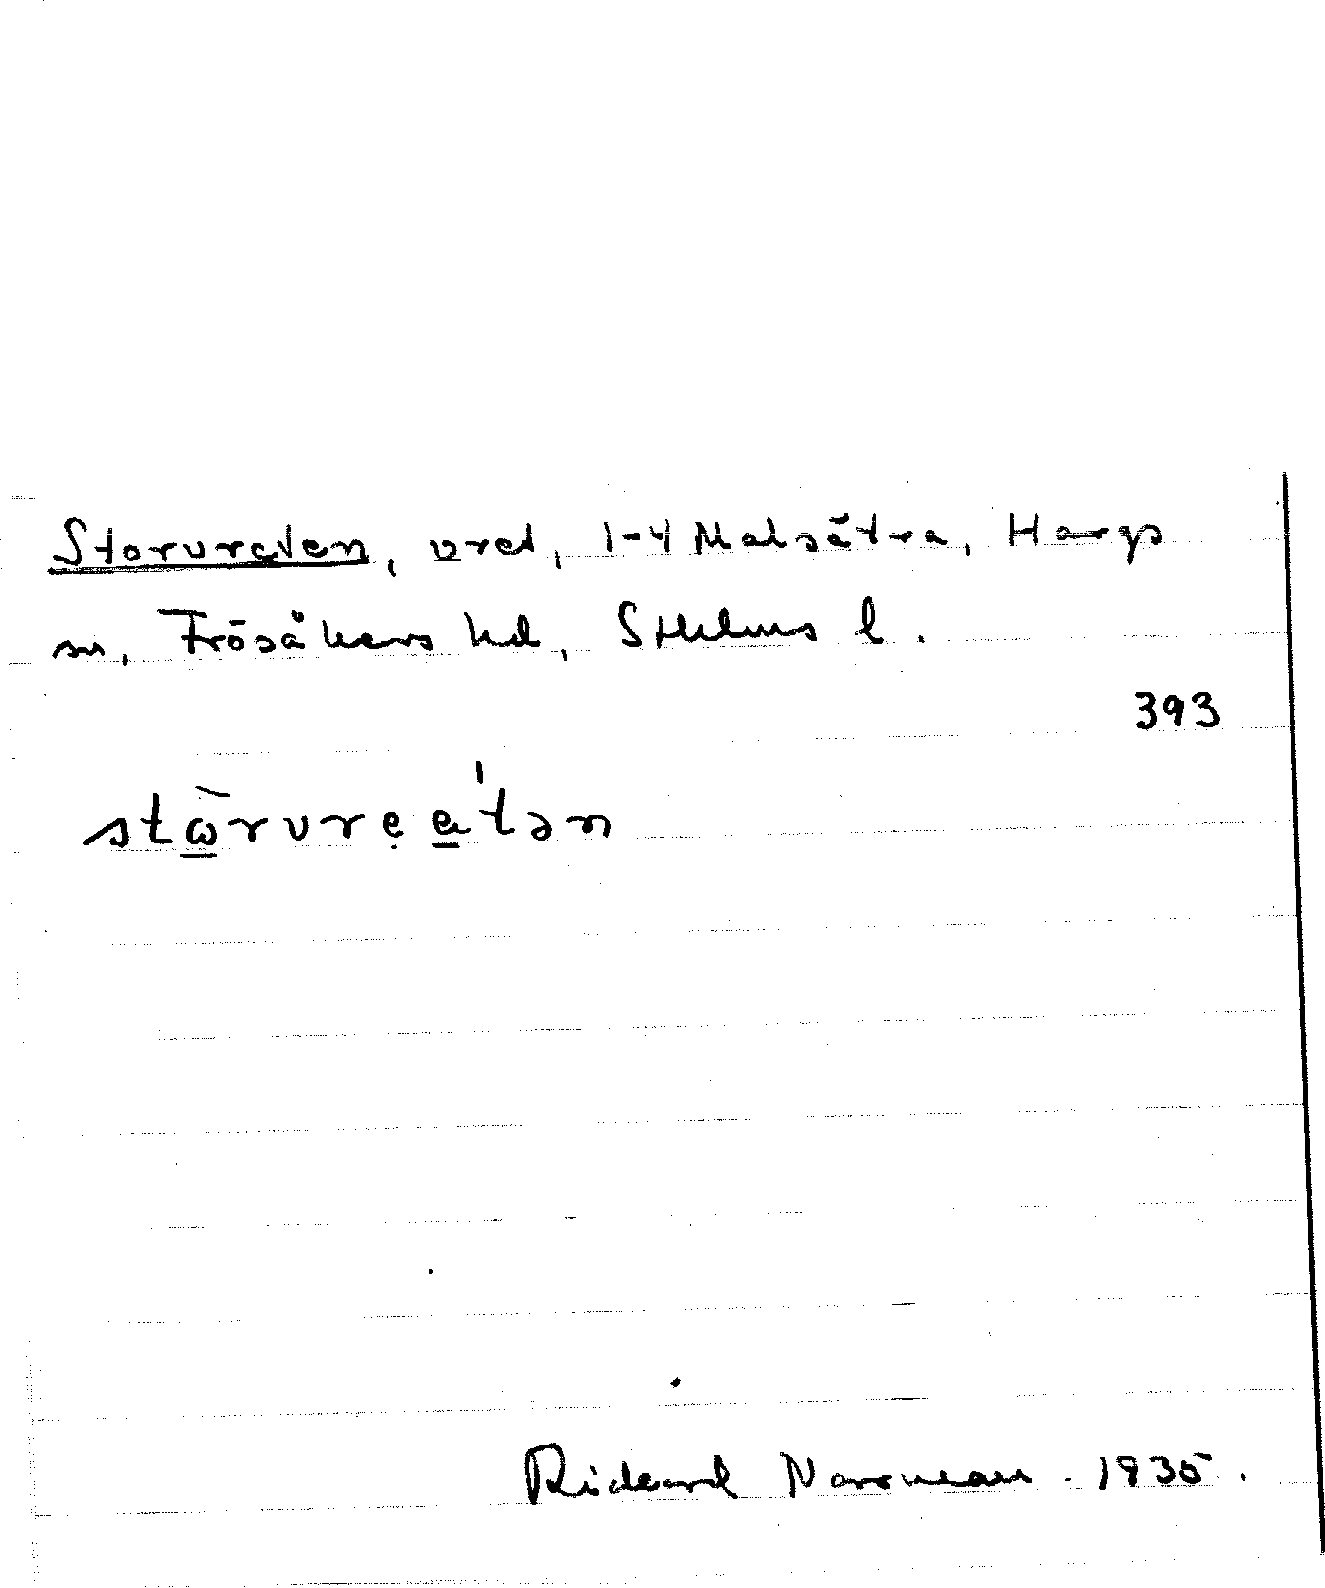 Storvreten, vret, 1-4 Malsätra, Hargs
sn, Frösåkers hd, Sthlms l.
393
stὼrvrẹe̱'tən
Rickard Norrman. 1935.